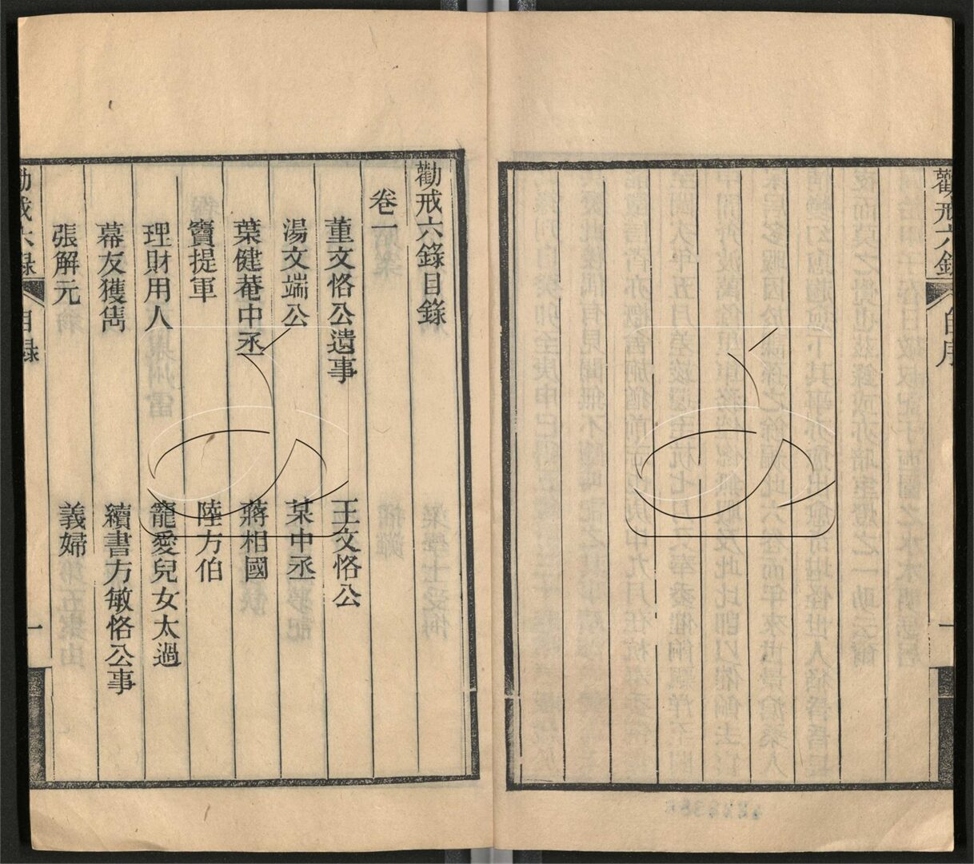 勸戒六錄
自序
一
勸戒六錄目錄
卷一
董文恪公遺事
王文恪公
湯文端公
某中丞
葉健菴中丞
蔣相國
竇提軍
陸方伯
理財用人
寵愛兒女太過
幕友獲雋
續書方敏恪公事
張解元
義婦
勸戒六錄
目錄
一